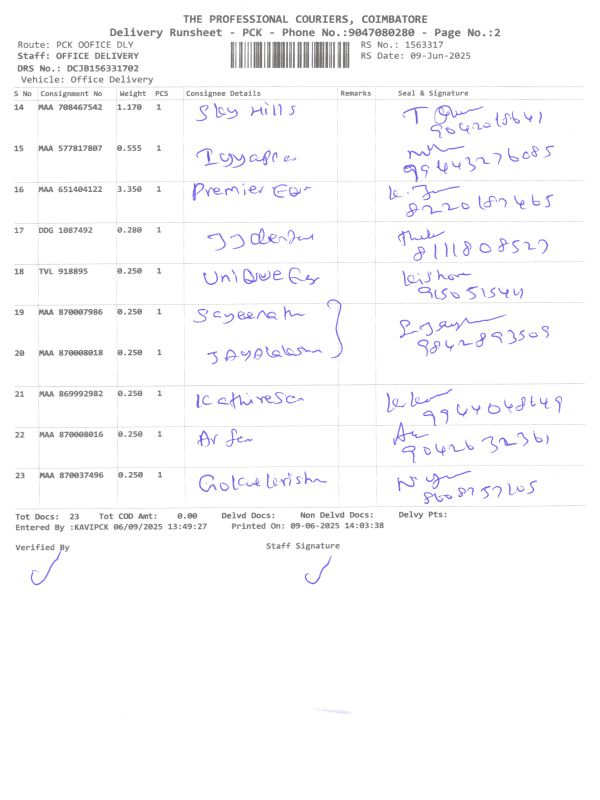 THE PROFESSIONAL COURIERS, COIMBATORE
Delivery Runsheet - PCK - Phone No.:9047080280 - Page No.:2
Route: PCK OOFICE DLY RS No.: 1563317
Staff: OFFICE DELIVERY RS Date: 09-Jun-2025
DRS No.: DCJB156331702
Vehicle: Office Delivery
S No Consignment No Weight PCS Consignee Details Remarks Seal & Signature
14 MAA 708467542 1.170 1 Sky Hills
15 MAA 577817807 0.555 1 99443276085
16 MAA 651404122 3.350 1 Premier
8220187465
17 DDG 1087492 0.280 1
8111808527
18 TVL 918895 0.250 1 Unique Kishor
19 MAA 870007986 0.250 1
9842893509
20 MAA 870008018 0.250 1
21 MAA 869992982 0.250 1 Kathiresan
9944048649
22 MAA 870008016 0.250 1
9042632361
23 MAA 870037496 0.250 1
Tot Docs: 23 Tot COD Amt: 0.00 Delvd Docs: Non Delvd Docs: Delvy Pts:
Entered By :KAVIPCK 06/09/2025 13:49:27 Printed On: 09-06-2025 14:03:38
Verified By Staff Signature